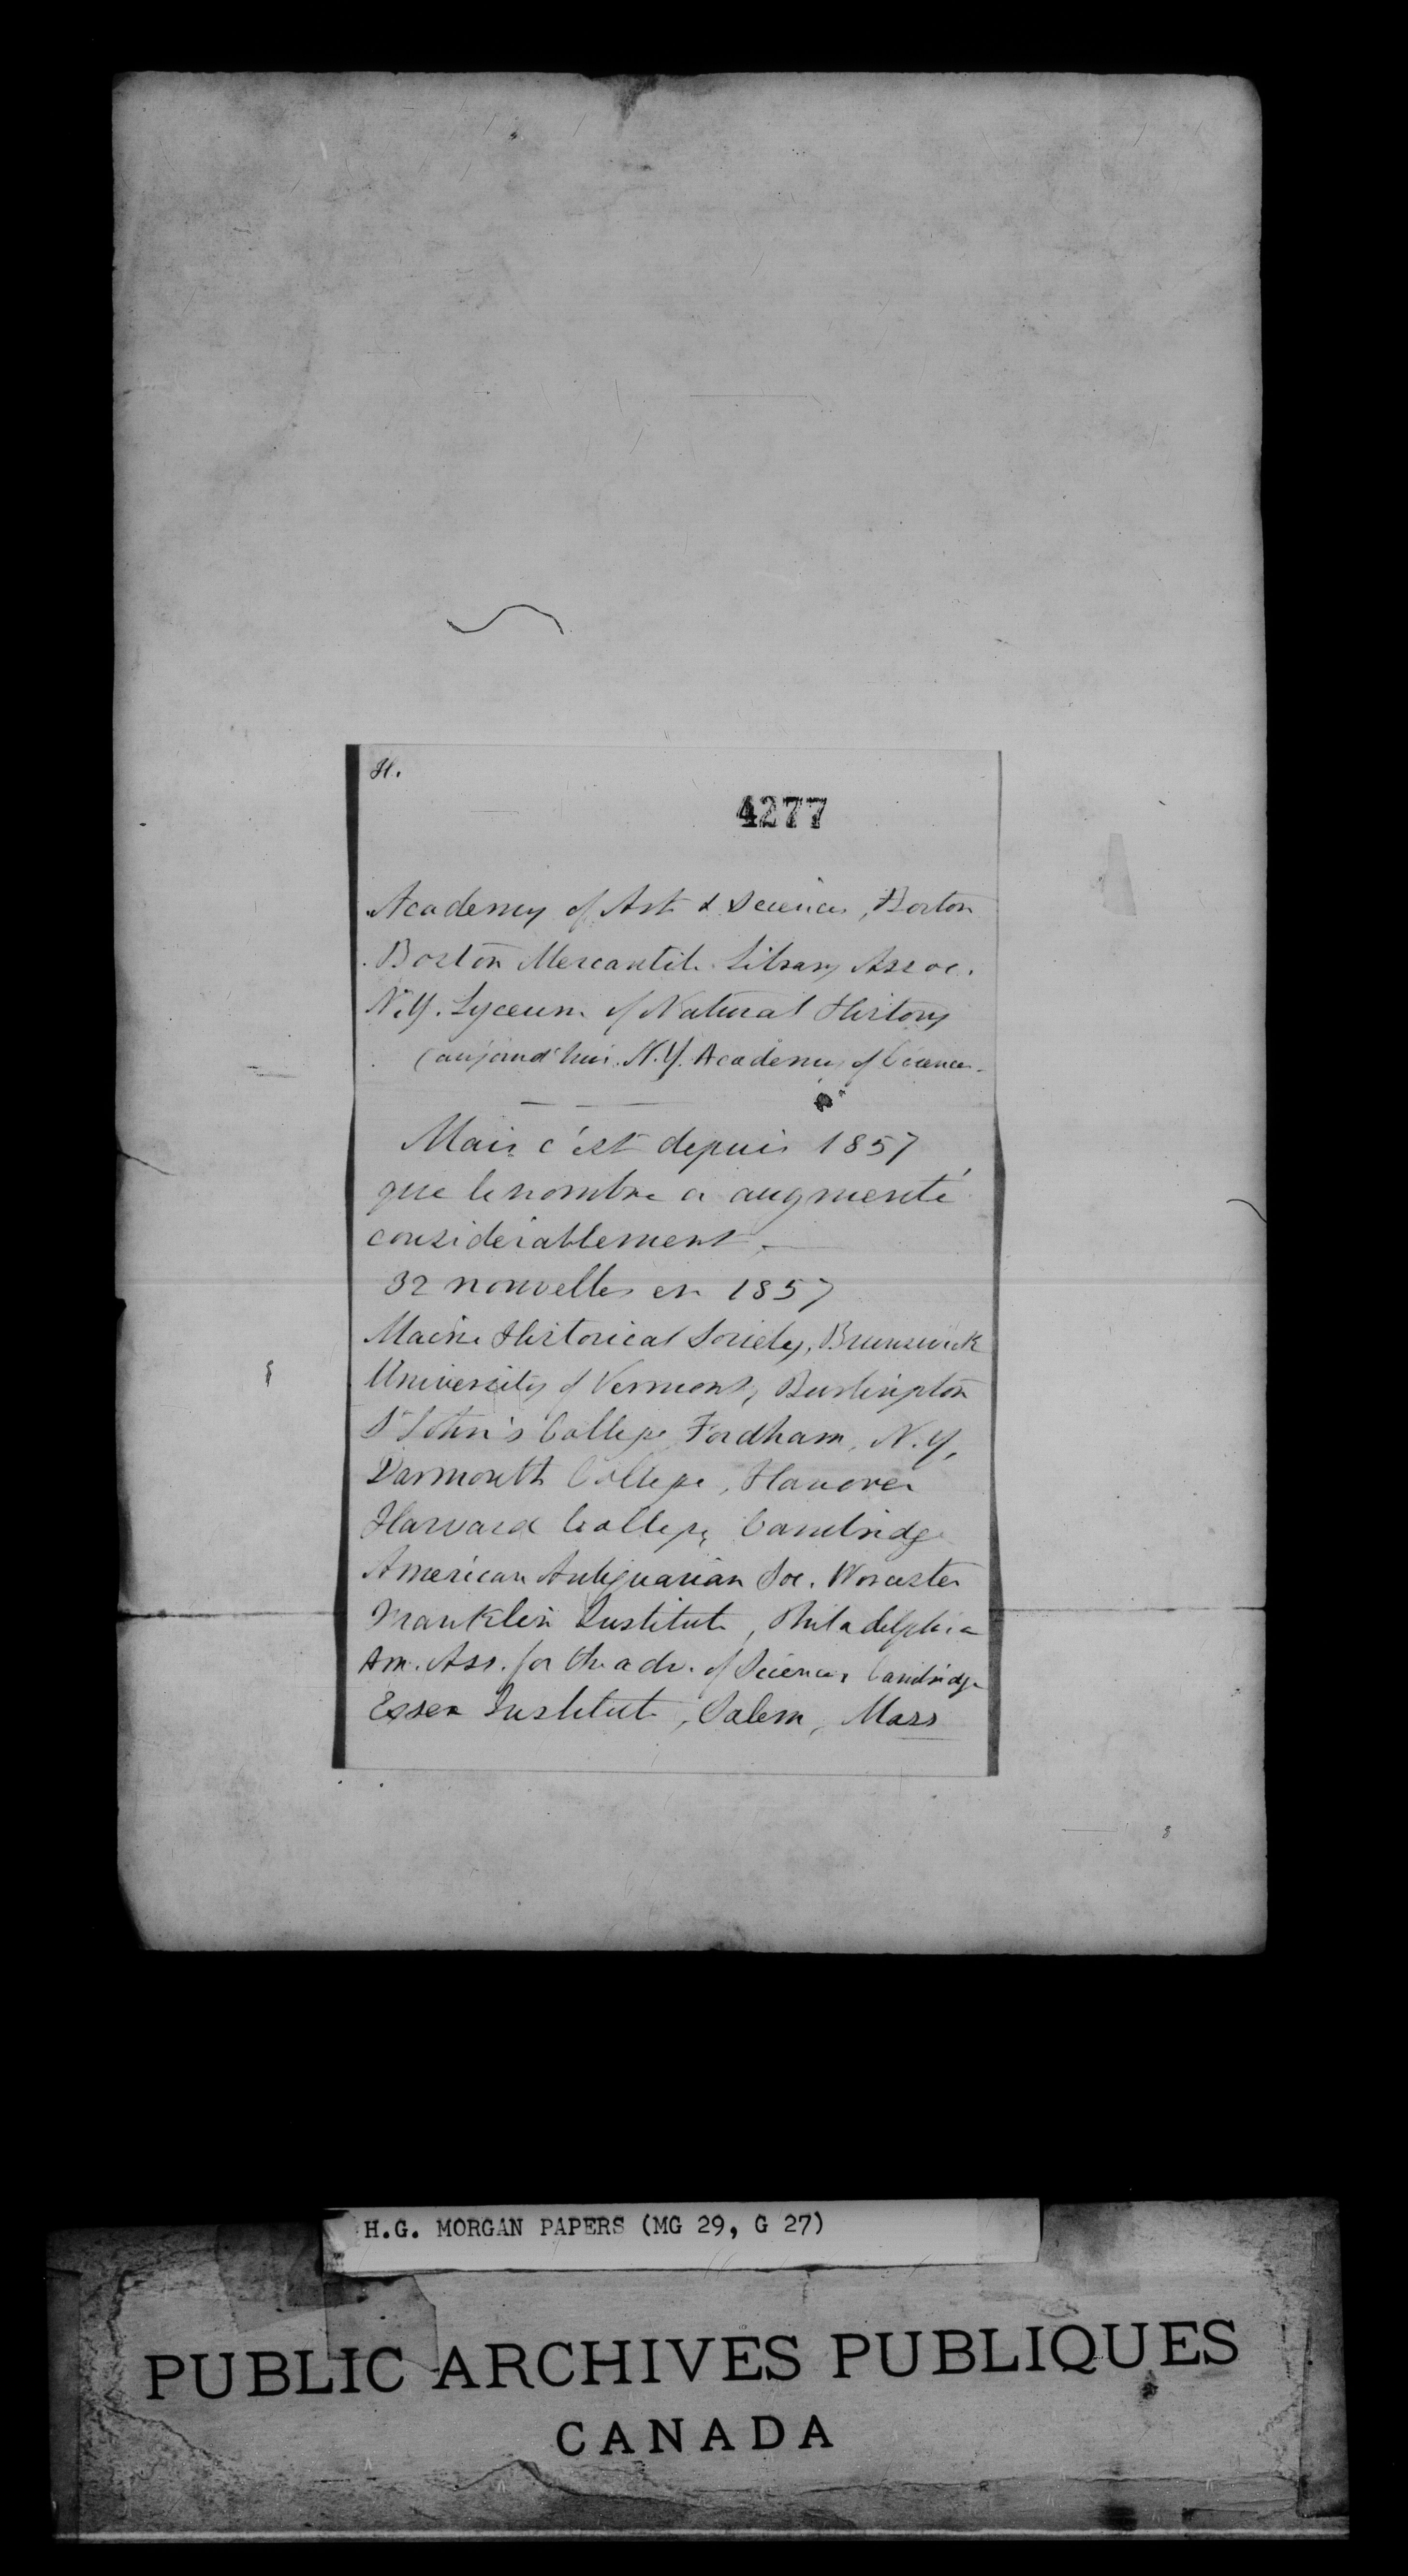 H.
4277
Academy of Arts & Sciences, Boston
Boston Mercantile Library Assoc.
N.Y. Lyceum of Natural History
(aujourd'hui N.Y. Academy of Sciences.
Mais c'est depuis 1857
que le nombre a augmenté
considérablement.
32 nouvelles en 1857
Maine Historical Society, Brunswick
University of Vermont, Burlington
St John's College Fordham, N.Y,
Darmouth College, Hanover
Harvard College, Cambridge
American Antiquarian Soc. Worcester
Franklin Institute, Philadelphia
Am. Ass. for the adv. of Science, Cambridge
Essex Institute, Salem, Mass
H.G. MORGAN PAPERS (MG 29, G 27)
PUBLIC ARCHIVES PUBLIQUES
CANADA